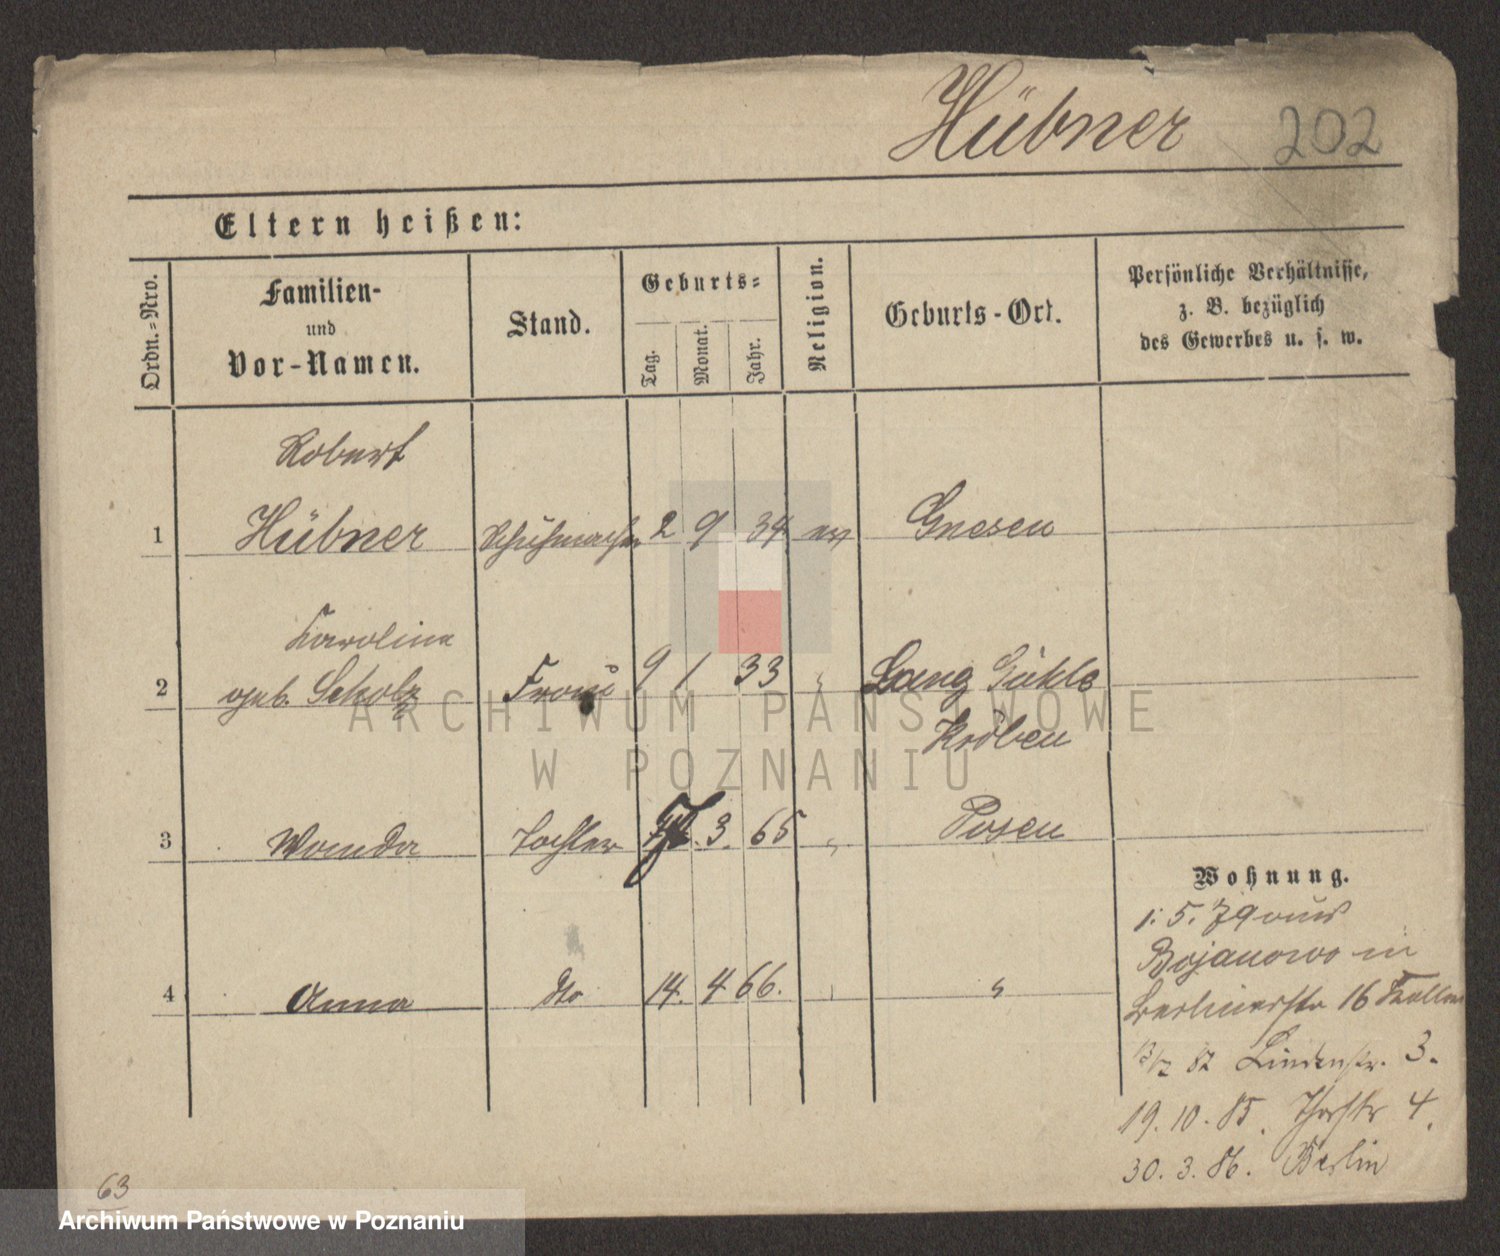 Hübner 202
Eltern heißen:
Ordn.-Nro.
Familien-
und
Vor-Namen.
Stand.
Geburts-
Tag. Monat. Jahr.
Religion.
Geburts-Ort.
Persönliche Verhältnisse,
z. B. bezüglich
des Gewerbes u. s. w.
Robert
1 Hübner Schuhmacher 2 9 34 ev Gnesen
Karoline
2 geb. Scholz Frau 9 1 33 " Lang Guhle
Kröben
3 Wanda Tochter 3. 65 " Posen
4 Anna dto 14. 4 66. "
Wohnung.
1. 5. 79 aus
Bojanowo in
Berlinerstr 16
82 Lindenstr. 3.
19. 10. 85. Thorstr 4.
30. 3. 86. Berlin
63
ARCHIWUM PAŃSTWOWE
W POZNANIU
Archiwum Państwowe w Poznaniu